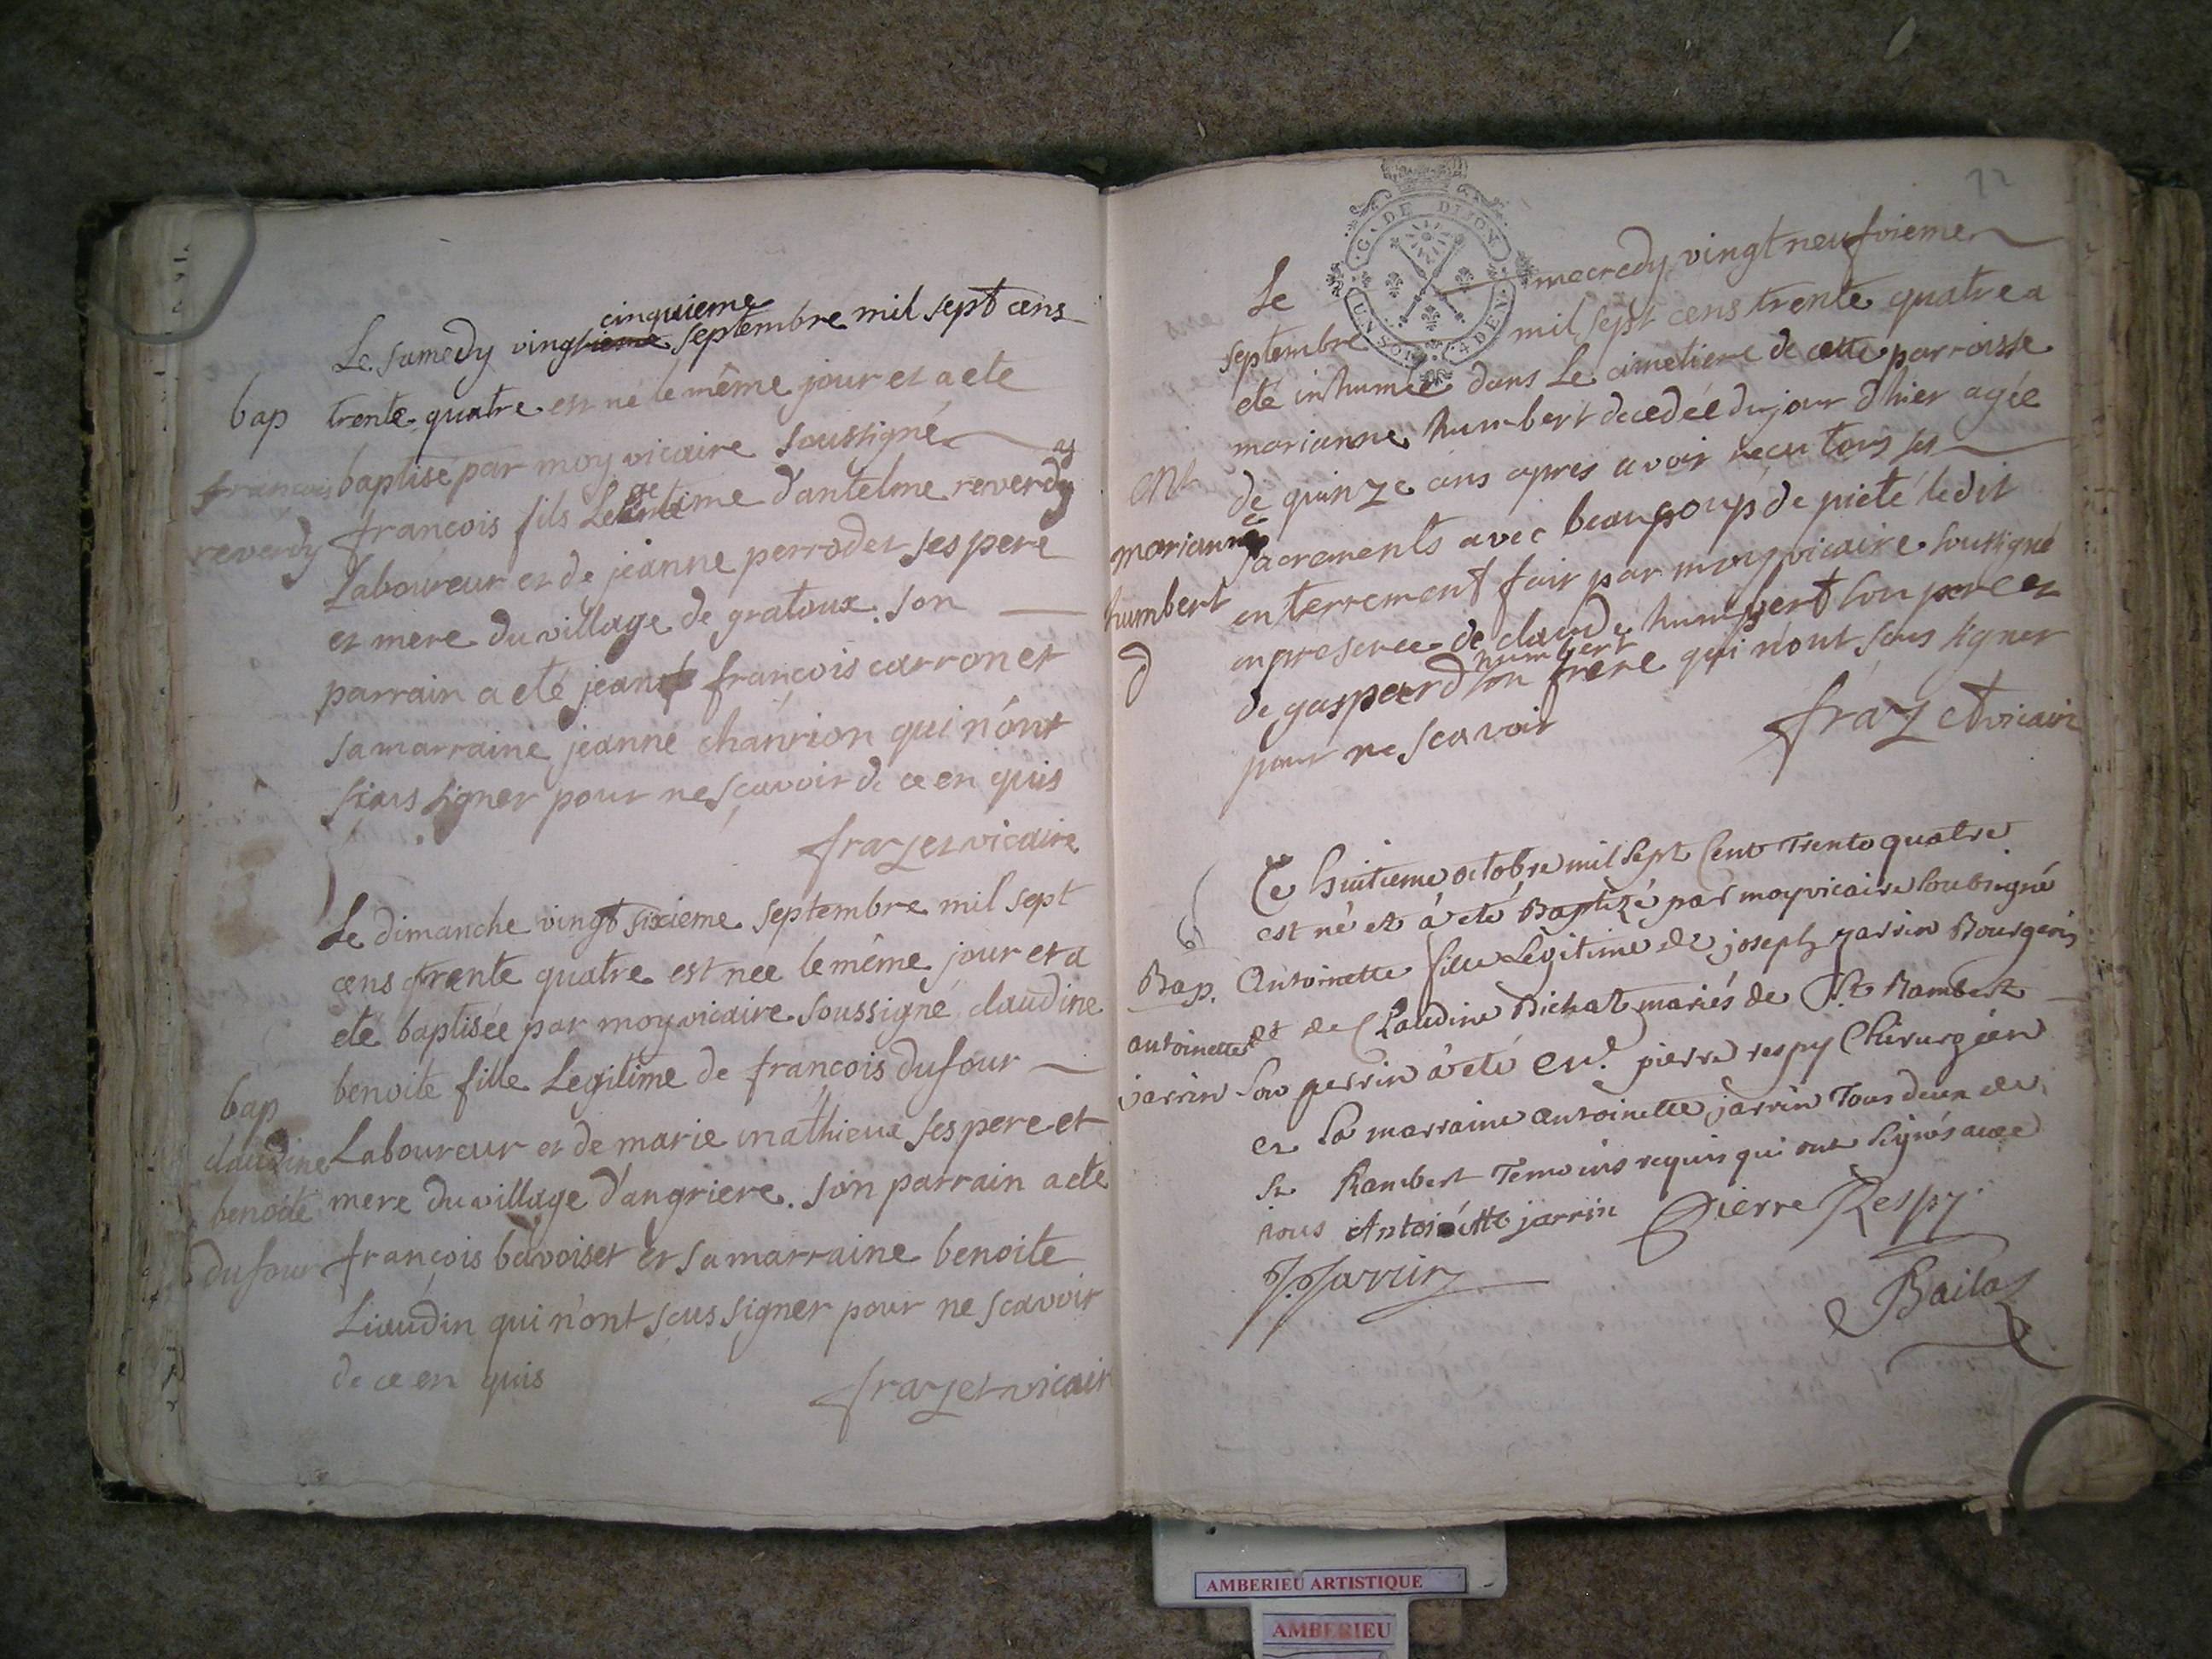 cinquieme
Le samedy vingtieme septembre mil sept cens
bap trente quatre est né le même jour et a eté
baptisé par moy vicaire soussigné
françois
reverdy
françois fils Legitime d'antelme reverdy
Laboureur et de jeanne perrodet ses pere
et mere du village de gratoux. son
parrain a eté jean françois carron et
sa marraine jeanne chanrion qui n'ont
sceus signer pour ne sçavoir de ce enquis
frazet vicaire
Le dimanche vingt sixieme septembre mil sept
cens trente quatre est née le même jour et a
eté baptisée par moy vicaire soussigné claudine
benoite fille Legitime de françois dufour
bap
claudine
benoite
dufour
Laboureur et de marie mathieux ses pere et
mere du village d'angriere. son parrain a eté
françois bavoiset et sa marraine benoite
Liaudin qui n'ont sceus signer pour ne scavoir
de ce en quis
frazet vicair
72
G. DE DIJON
UN SOL 4 DEN
Le mecredy vingt neufvieme
septembre mil sept cens trente quatre a
eté inhumée dans Le cimetiere de cette parroisse
marianne humbert decedée du jour d'hier agée
ent
marianne
humbert
d
de quinze ans apres avoir reçu tous ses
sacrements avec beaucoup de pieté ledit
enterrement fait par moy vicaire soussigné
en presence de claude humbert son pere et
humbert
de gaspard son frere qui n'ont sceus signer
pour ne scavoir
frazet vicair
Le huitieme octobre mil sept Cent Trente quatre
est né et à eté Baptizé par moy vicaire soubsigné
6
Bap.
antoinette
jarrin
Antoinette fille Legitime de joseph jarrin Bourgeois
et de Claudine Bichat mariés de St Rambert
son perrin à eté pierre respy Chirurgien
et sa marraine antoinette jarrin Tous deux de
St Rambert Temoins requis qui ont signés avec
nous Antoinette jarrin Pierre Respy
J. Jarrin